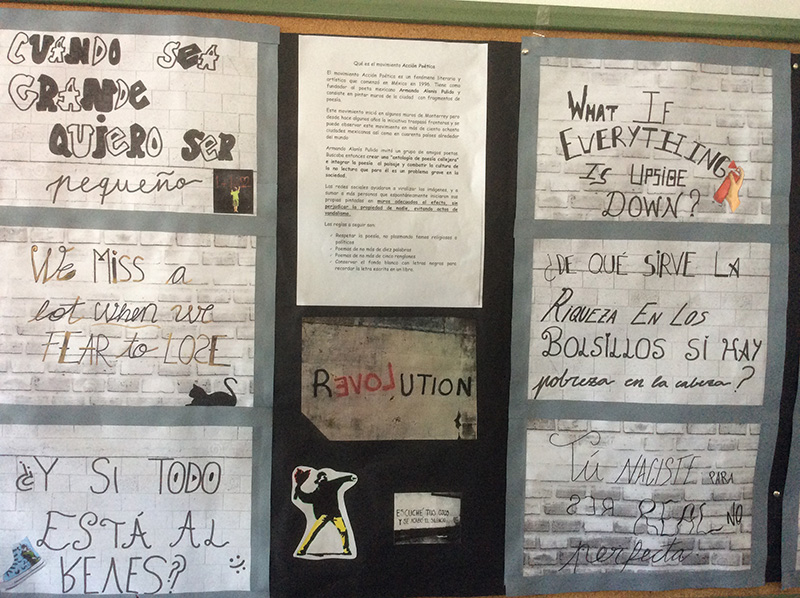 CUANDO SEA
GRANDE
QUIERO SER
pequeño
We Miss a
lot when we
FEAR to LOSE
¿Y SI TODO
ESTÁ AL
REVES?
Qué es el movimiento Acción Poética
El movimiento Acción Poética es un fenómeno literario y
artístico que comenzó en México en 1996. Tiene como
fundador al poeta mexicano Armando Alanís Pulido y
consiste en pintar muros de la ciudad con fragmentos de
poesía.
Este movimiento inició en algunos muros de Monterrey pero
desde hace algunos años la iniciativa traspasó fronteras y se
puede observar este movimiento en más de ciento ochenta
ciudades mexicanas así como en cuarenta países alrededor
del mundo
Armando Alanís Pulido invitó un grupo de amigos poetas.
Buscaba entonces crear una "antología de poesía callejera"
e integrar la poesía al paisaje y combatir la cultura de
la no lectura que para él es un problema grave en la
sociedad.
Las redes sociales ayudaron a viralizar las imágenes, y a
sumar a más personas que espontáneamente hicieron sus
propias pintadas en muros adecuados al efecto, sin
perjudicar la propiedad de nadie, evitando actos de
vandalismo.
Las reglas a seguir son:
Respetar la poesía, no plasmando temas religiosos o
políticos
Poemas de no más de diez palabras
Poemas de no más de cinco renglones
Conservar el fondo blanco con letras negras para
recordar la letra escrita en un libro.
REVOLUTION
ESCUCHÉ TUS OJOS
Y SE
WHAT IF
EVERYTHING
IS UPSIDE
DOWN?
¿DE QUÉ SIRVE LA
RIQUEZA EN LOS
BOLSILLOS SI HAY
pobreza en la cabeza?
Tú NACISTE PARA
SER REAL NO
perfecta.